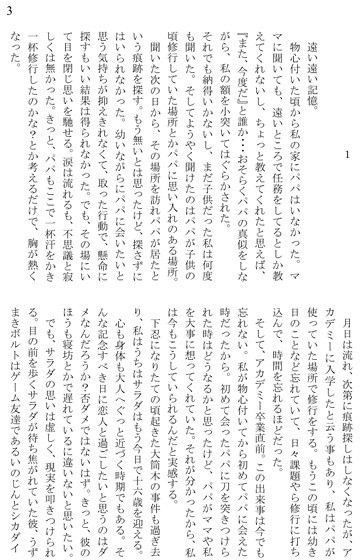 3
1
遠い遠い記憶。
物心付いた頃から私の家にパパはいなかった。マ
マに聞いても、遠いところで任務をしてるとしか教
えてくれないし、ちょっと教えてくれたと思えば、
『また、今度だ』と誰か…おそらくパパの真似をしな
がら、私の額を小突いてはぐらかされた。
それでも納得いかないし、まだ子供だった私は何度
も聞いた。そしてようやく聞けたのはパパが子供の
頃修行していた場所とかパパに思い入れのある場所。
聞いた次の日から、その場所を訪れパパが居たと
いう痕跡を探す。もう無いとは思ったけど、探さずに
はいられなかった。幼いながらにパパに会いたいと
思う気持ちが抑えきれなくて、取った行動で、懸命に
探すもいい結果は得られなかった。でも、その場にい
て目を閉じ思いを馳せる。涙は流れるも、不思議と寂
しくは無かった。きっと、パパもここで一杯汗をかき
一杯修行したのかな?とか考えるだけで、胸が熱く
なった。
月日は流れ、次第に痕跡探しはしなくなったが、ア
カデミーに入学したと云う事もあり、私はパパが
使っていた場所で修行をする。もうこの頃には幼い
日のことなど忘れていて、日々課題やら修行に打ち
込んで、時間を忘れるほどだった。
そして、アカデミー卒業直前。この出来事は今でも
忘れない。私が物心付いてから初めてパパに会えた
時だったから。初めて会ったパパに刀を突きつけら
れた時はどうなるかと思ったけど、パパがママや私
を大事に想ってくれていた。それが分かったから、私
は今もこうしていられるんだと実感する。
下忍になりたての頃起きた大筒木の事件も過ぎ去
り、私はうちはサラダはもう今日で十六歳を迎える。
心も身体も大人へぐっと近づく時期でもある。そ
んな記念すべき日に恋人と過ごしたいと思うのはダ
メなんだろうか?否ダメではないはず。きっと、彼の
ほうも寝坊とかで遅れているに違いないと思いたい。
でも、サラダの思いは虚しく、現実を叩きつけられ
る。目の前を歩くサラダが待ち焦がれていた彼、うず
まきボルトはゲーム友達であるいのじんとシカダイ